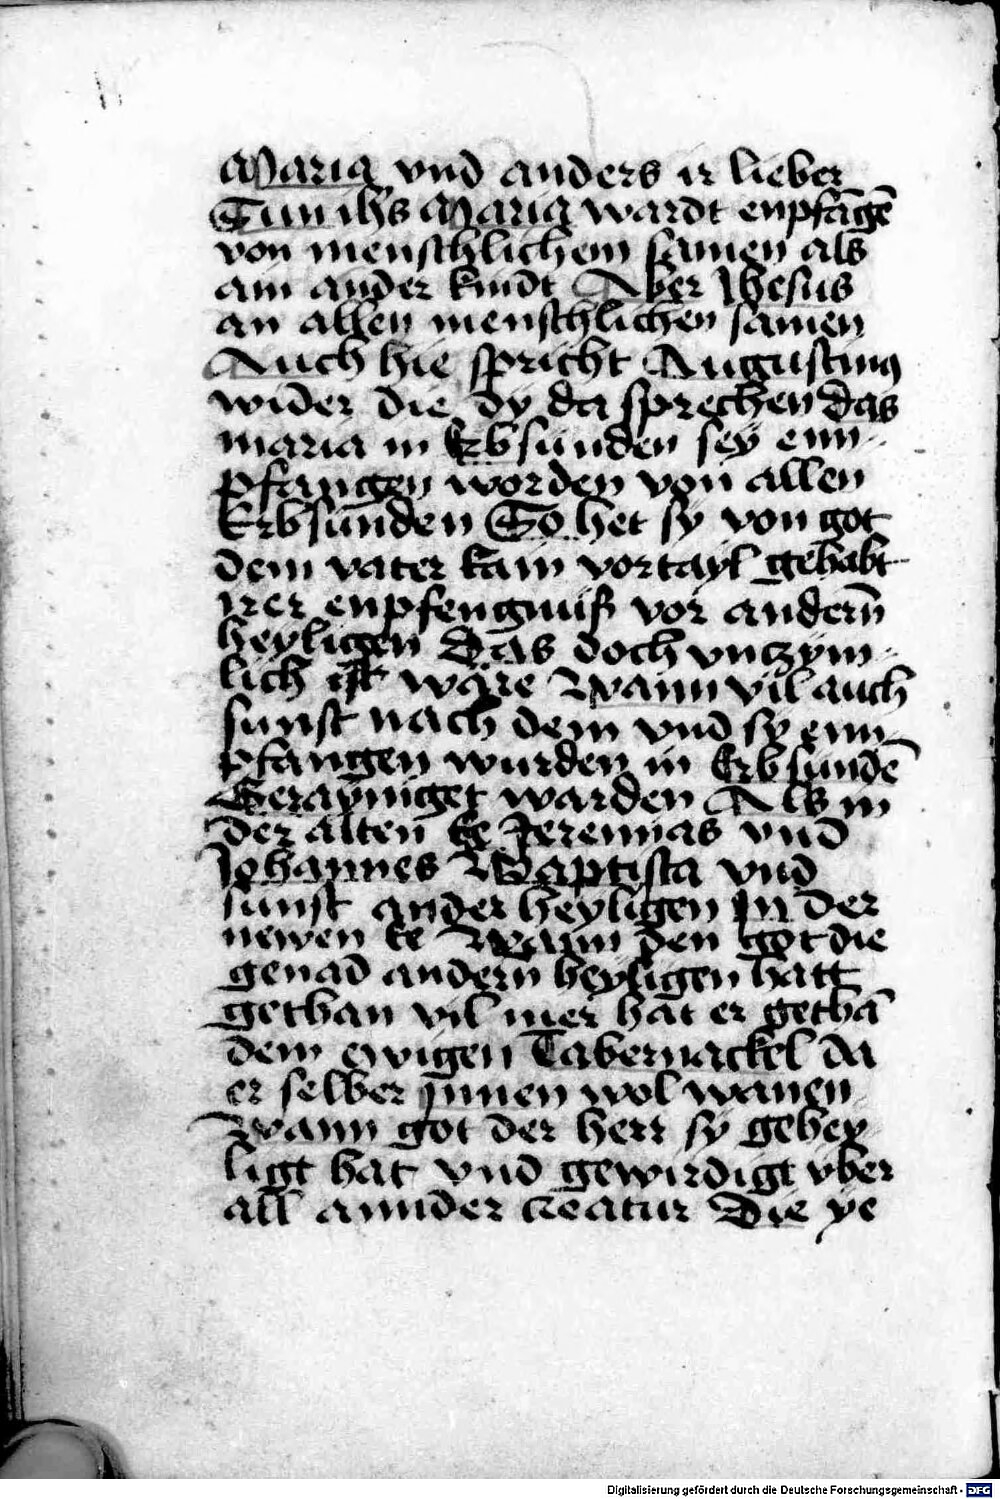 Maria vnd anders ir lieber
Sun ihs Maria wardt enpfāgē
von menschlichem samen als
ain ander kindt Aber Jhesus
an allen menschlichen samen
Auch hie spricht Augustinus
wider die dy da sprechen das
maria in Erbsunden sey enn-
pfangen worden von allen
Erbsunden So het sy von got
dem vater kain vortayl gehabt
irer enpfengnuß vor andern̄
heyligen Das doch vnczym-
lich ist wäre Wann vil auch
sunst nach dem vnd sy enn-
pfangen wurden in Erbsundē
Gerayniget warden Als in
der alten Ee Jeremias vnd
Johannes Waptista vnd
sunst ander heyligen In der
newen Ee Wann den got die
genad andern heyligen hatt
gethan vil mer hat er gethā
dem ewigen Tabernackel da
er selber Innen wol wanen
Wann got der herr sy gehey-
ligt hat vnd gewirdigt vber
all annder creatur Die ye
Digitalisierung gefördert durch die Deutsche Forschungsgemeinschaft - DFG